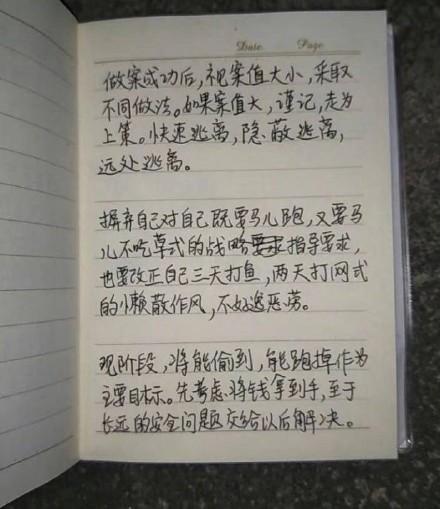 Date Page
做案成功后，视案值大小，采取
不同做法。如果案值大，谨记，走为
上策。快速逃离，隐蔽逃离，
远处逃离。
摒弃自己对自己既要马儿跑，又要马
儿不吃草式的战略要求指导要求，
也要改正自己三天打鱼，两天打网式
的小懒散作风，不好逸恶劳。
现阶段，将能偷到，能跑掉作为
主要目标。先考虑将钱拿到手，至于
长远的安全问题交给以后解决。